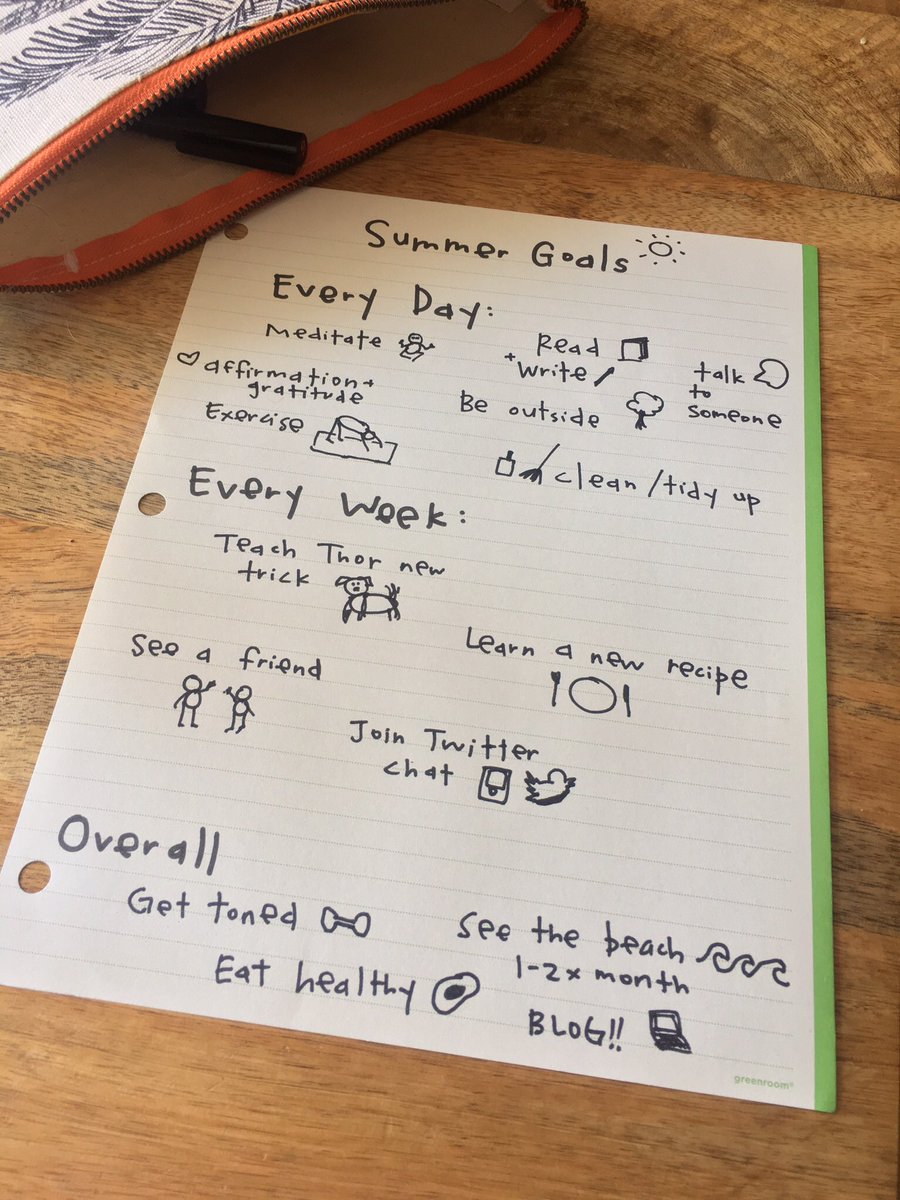 Summer Goals
Every Day:
Meditate
Read
+ Write
talk
to
someone
affirmation +
gratitude
Be outside
Exercise
clean/tidy up
Every Week:
Teach Thor new
trick
Learn a new recipe
See a friend
Join Twitter
chat
Overall
Get toned
See the beach
1-2x month
Eat healthy
BLOG!!
greenroom®